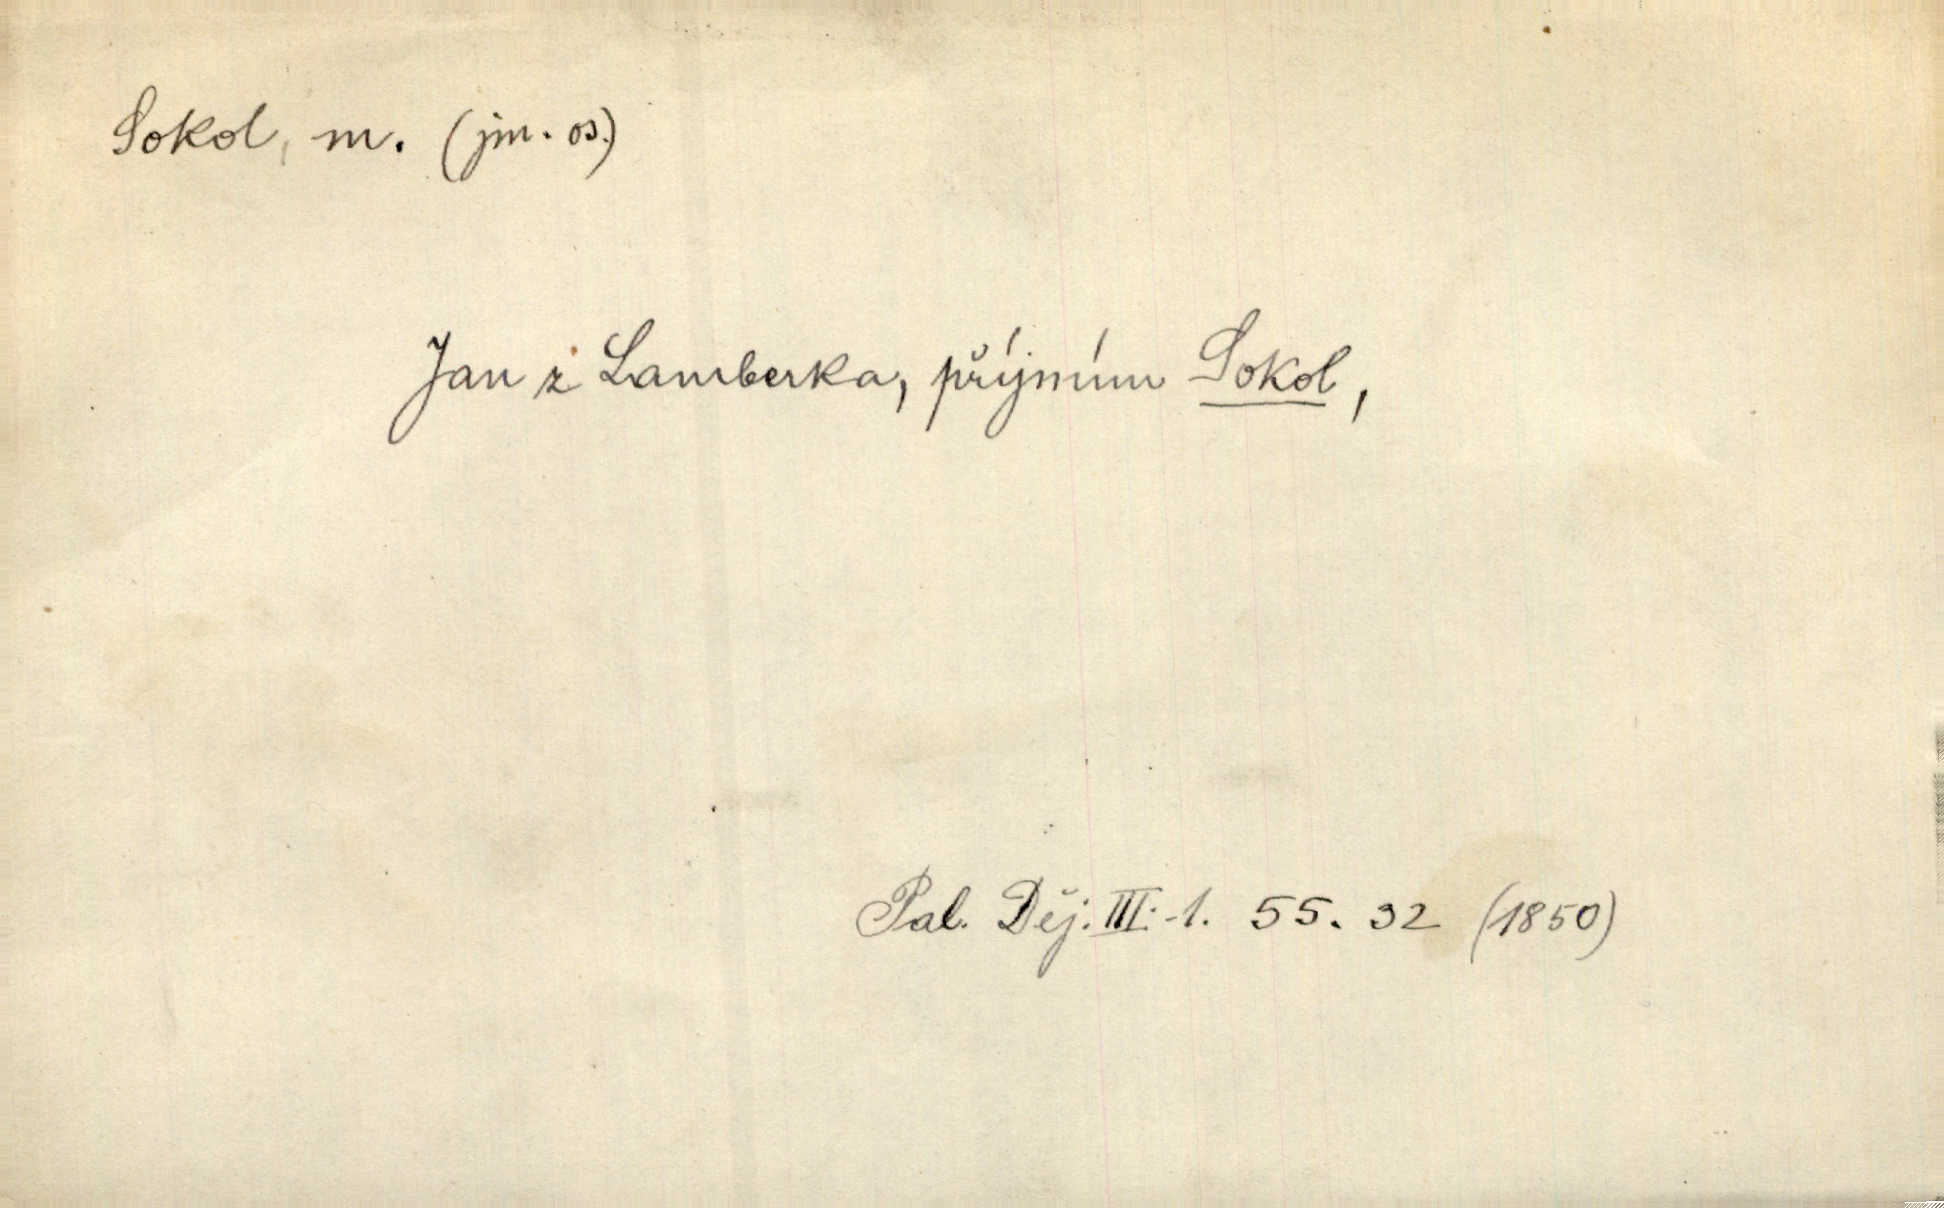 Sokol, m. (jm. os.)
Jan z Lamberka, příjmím Sokol,
Pal. Děj. III.-1. 55. 32 (1850)